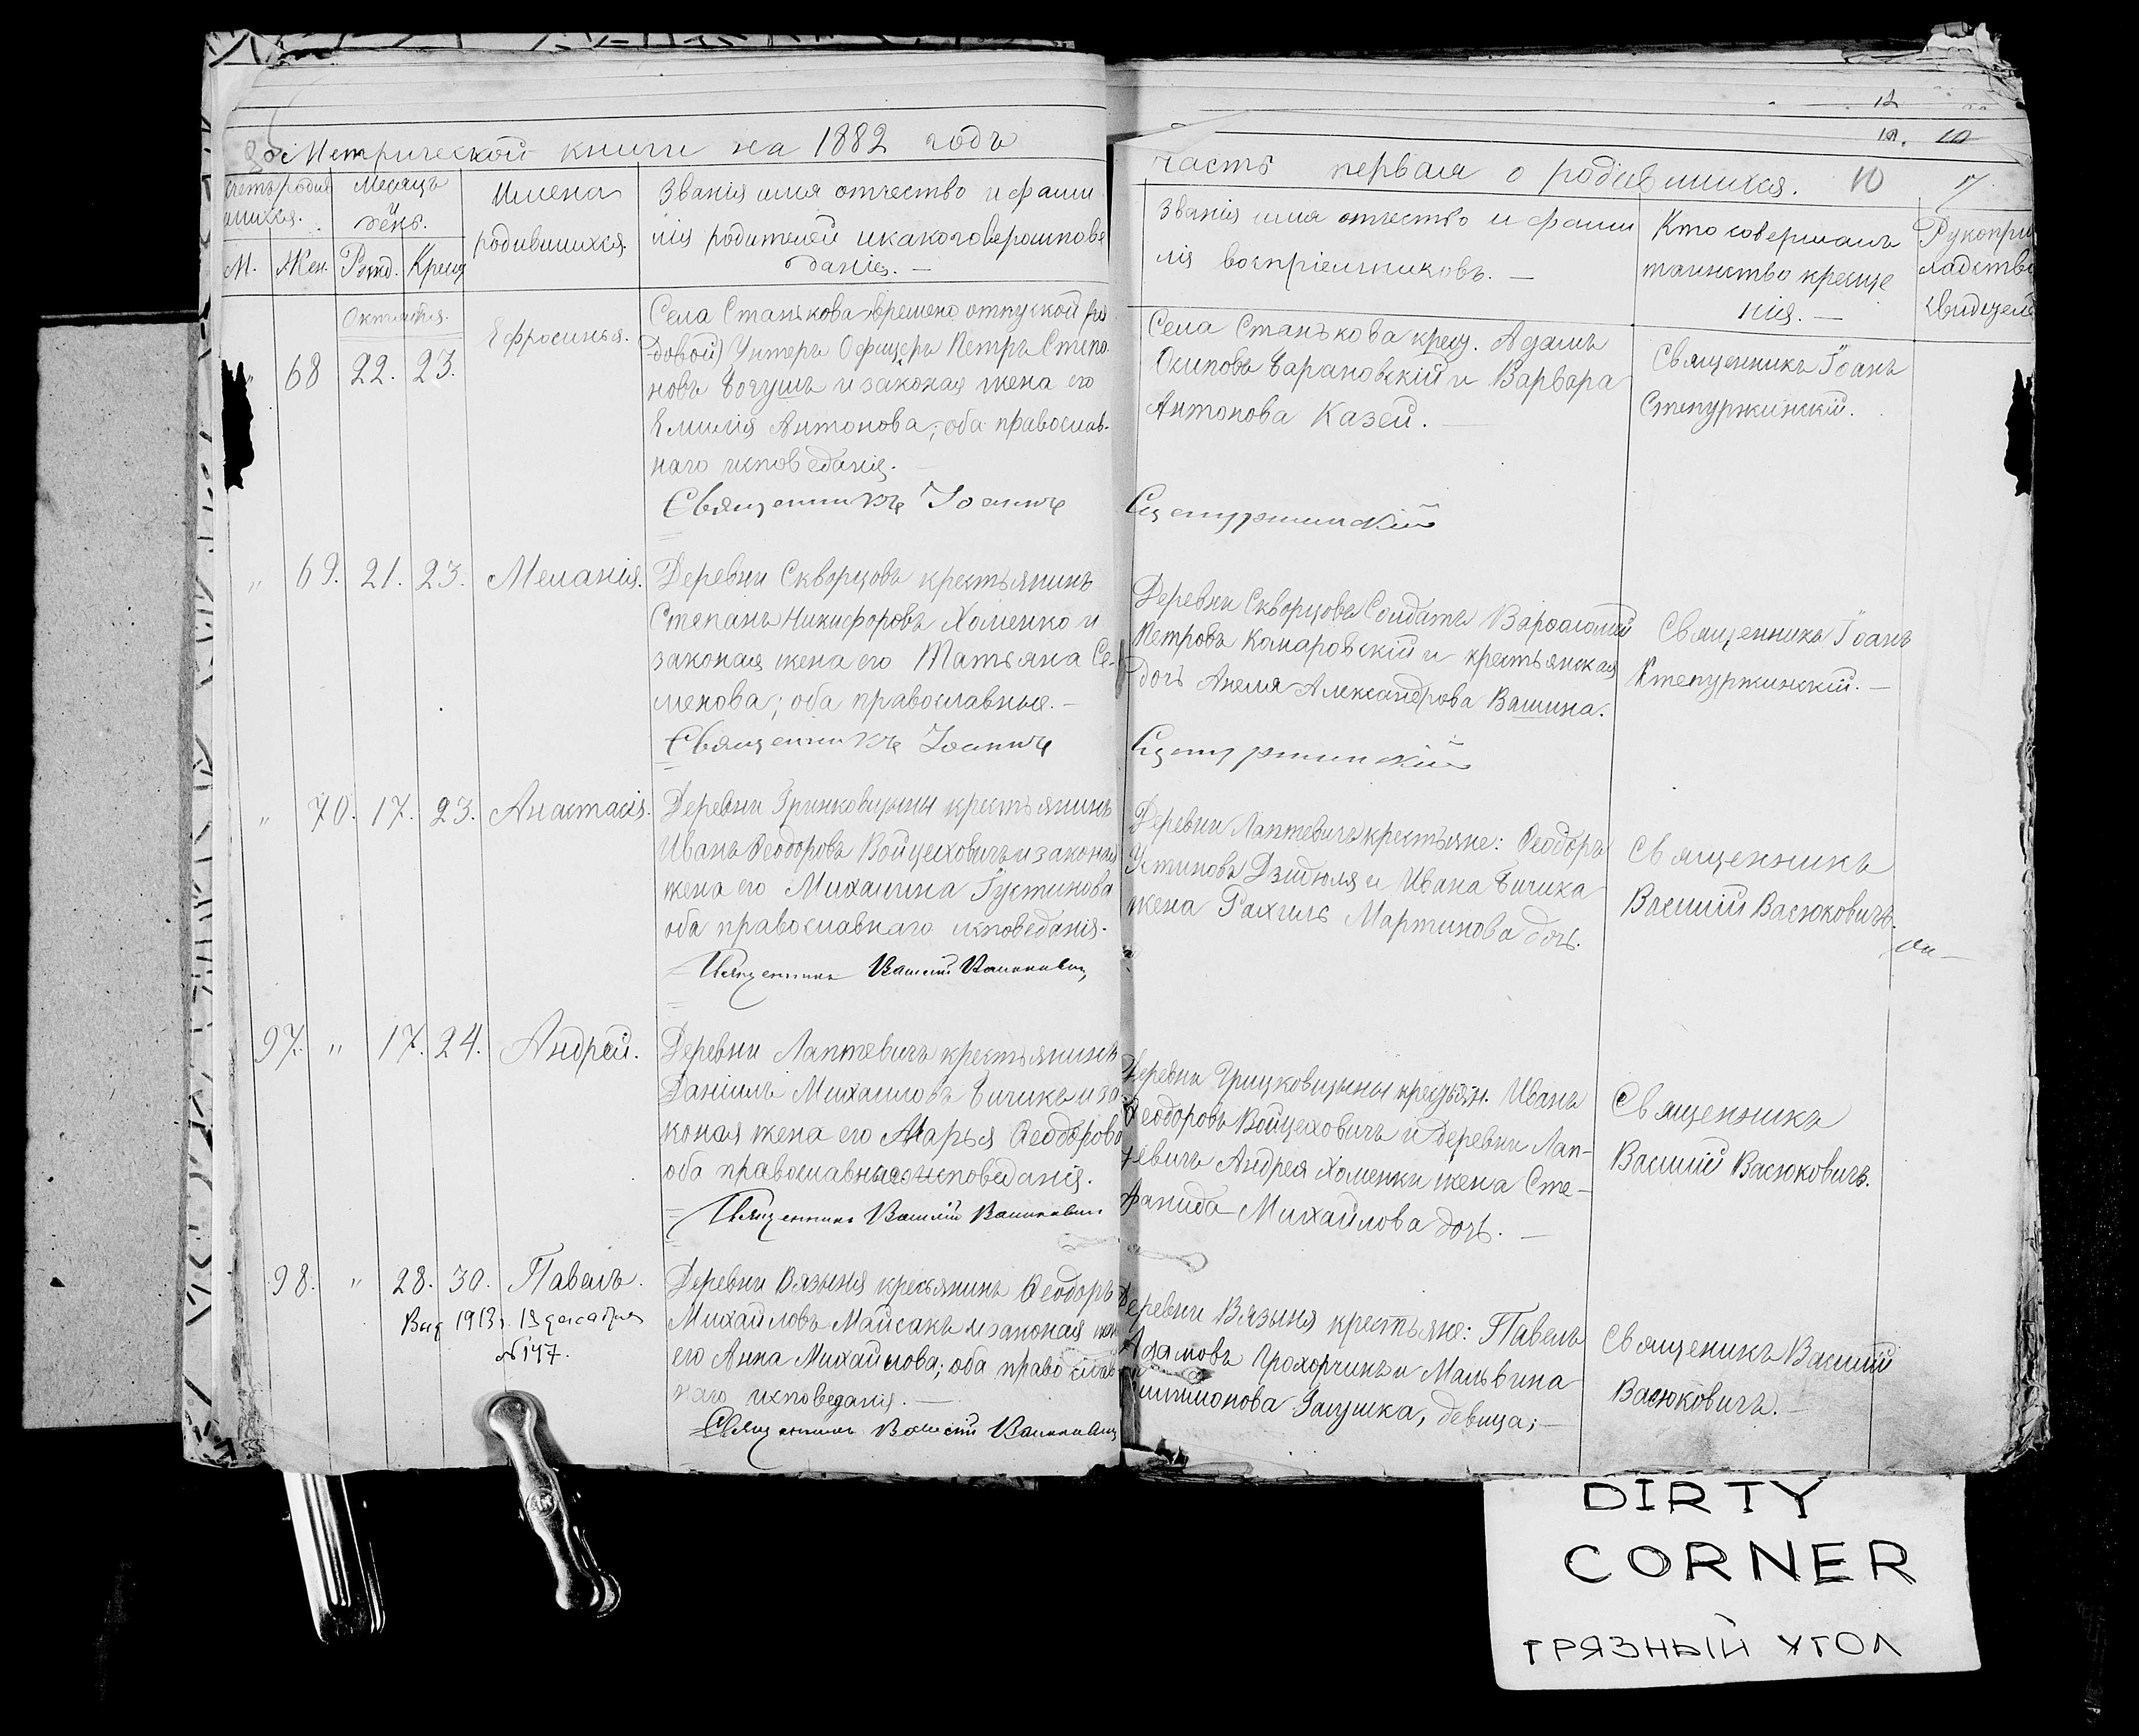 Метрической книги на 1882 годъ
часть первая о родившихся. 10
Счетъ родив
шихся.
Месяцъ
и
день.
Имена
родившихся.
Званія имя отчество и фами
лія родителей и какого вероиспове
данія. —
М. Жен. Рожд. Крещ
Званія имя отчество и фами
лія воспріемниковъ. —
Кто совершалъ
таинство креще
нія. —
Рукопри
кладство
свидетел
Октября.
68 22. 23.
Ефросинья.
Села Станькова временно отпускной (ря
довой) Унтеръ Офицеръ Петръ Степа
новъ Богушъ и законая жена его
Емилія Антонова; оба православ-
наго исповеданія.
Села Станькова крещ. Адамъ
Осиповъ Барановскій и Варвара
Антонова Казей. —
Священникъ Іоанъ
Степуржинскій.
Священникъ Іоаннъ
Сцепуржинскій
" 69. 21. 23. Меланія.
Деревни Скворцовъ крестьянинъ
Степанъ Никифоровъ Хоменко и
законая жена его Татьяна Се-
менова; оба православные. —
Деревни Скворцовъ Солдатъ Варфоломей
Петровъ Комаровскій и крестьянская
дочь Анеля Александрова Вашина.
Священникъ Іоанъ
Степуржинскій. —
Священникъ Іоаннъ
Сцепуржинскій
" 70. 17. 23. Анастасія.
Деревни Гринковщины крестьянинъ
Иванъ Ѳеодоровъ Войцеховичъ и законая
жена его Михалина Іустинова
оба православнаго исповеданія.
Деревни Лаптевичъ крестьяне: Ѳеодоръ
Устиновъ Дзидюля и Ивана Бичика
жена Рахиль Мартинова дочь.
Священникъ
Василій Васюковичъ.
Священникъ Василій Васюковичъ
97. " 17. 24. Андрей.
Деревни Лаптевичъ крестьянинъ
Даніилъ Михаиловъ Бичикъ и за
коная жена его Марья Ѳеодорово
оба православнысоисповеданія.
Деревни Грицковщины крестьян. Иванъ
Ѳеодоровъ Войцеховичъ и деревни Лап-
тевичъ Андрея Хоменки жена Сте-
фанида Михайлова дочь. —
Священникъ
Василій Васюковичъ.
Священникъ Василій Васюковичъ
98. " 28. 30. Павелъ.
Выд 1913г. 13 декабря
№ 147.
Деревни Вязыня кресьянинъ Ѳеодоръ
Михайловъ Майсакъ и законая жен
его Анна Михайлова; оба православ
наго исповеданія. —
Деревни Вязыня крестьяне: Павелъ
Адамовъ Прохорчикъ и Мальвина
Залушка, девица; —
Священикъ Василій
Васюковичъ. —
Священникъ Василій Васюковичъ
DIRTY
CORNER
ГРЯЗНЫЙ УГОЛ